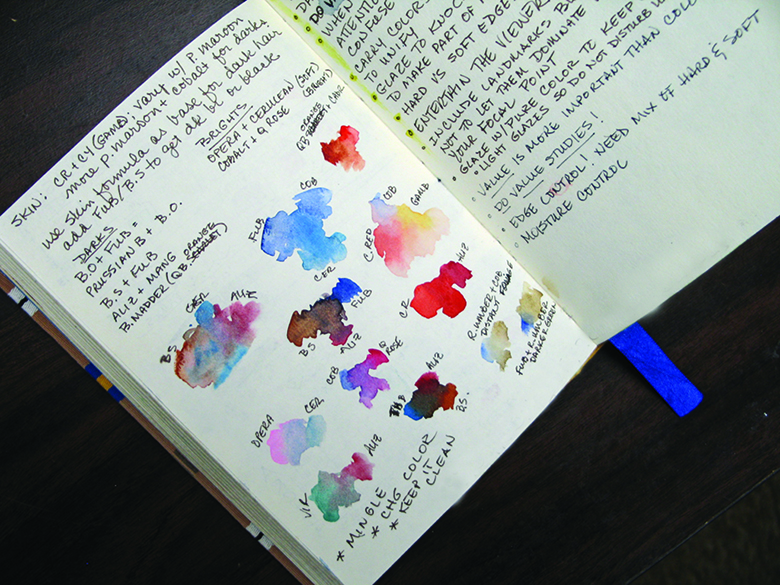 SKIN: CR, ICY (GAMB); vary w/ P. maroon
more P. maroon + cobalt for dark.
use skin formula as base for dark hair
add FUB/B.S to get dk bl or black
DARKS
B.O + FUB =
PRUSSIAN B + B.O.
B.S + FUB
ALIZ + MANG ORANGE
B. MADDER (QB. SCARLET)
BRIGHTS
OPERA + CERULEAN (SOFT)
COBALT + Q ROSE (BRIGHT)
ORANGE
(QB CAR
COB
FUB
CER
COB
GAMB
C. RED
CER
ALIZ
B.S
FUB
B.S
ALIZ
ALIZ
CR
R. UMBER + COB
DISTANT
FUB + R. UMBER
DARKER GREEN
Q ROSE
COB
ALIZ
B.S.
OPERA
CER
ALIZ
VIR
* MINGLE
* CHG COLOR
* KEEP IT CLEAN
DO V
WHEN
ATTENTI
CONVERSE
CARRY COLOR
TO UNIFY
GLAZE TO KNOC
TO MAKE PART OF
HARD IS SOFT EDGE
ENTERTAIN THE VIEWER
INCLUDE LANDMARKS B
NOT TO LET THEM DOMINATE
YOUR FOCAL POINT
GLAZE W/ PURE COLOR TO KEEP
- LIGHT GLAZES SO DO NOT DISTURB
VALUE IS MORE IMPORTANT THAN COLO
DO VALUE STUDIES!
EDGE CONTROL! NEED MIX OF HARD & SOFT
MOISTURE CONTROL